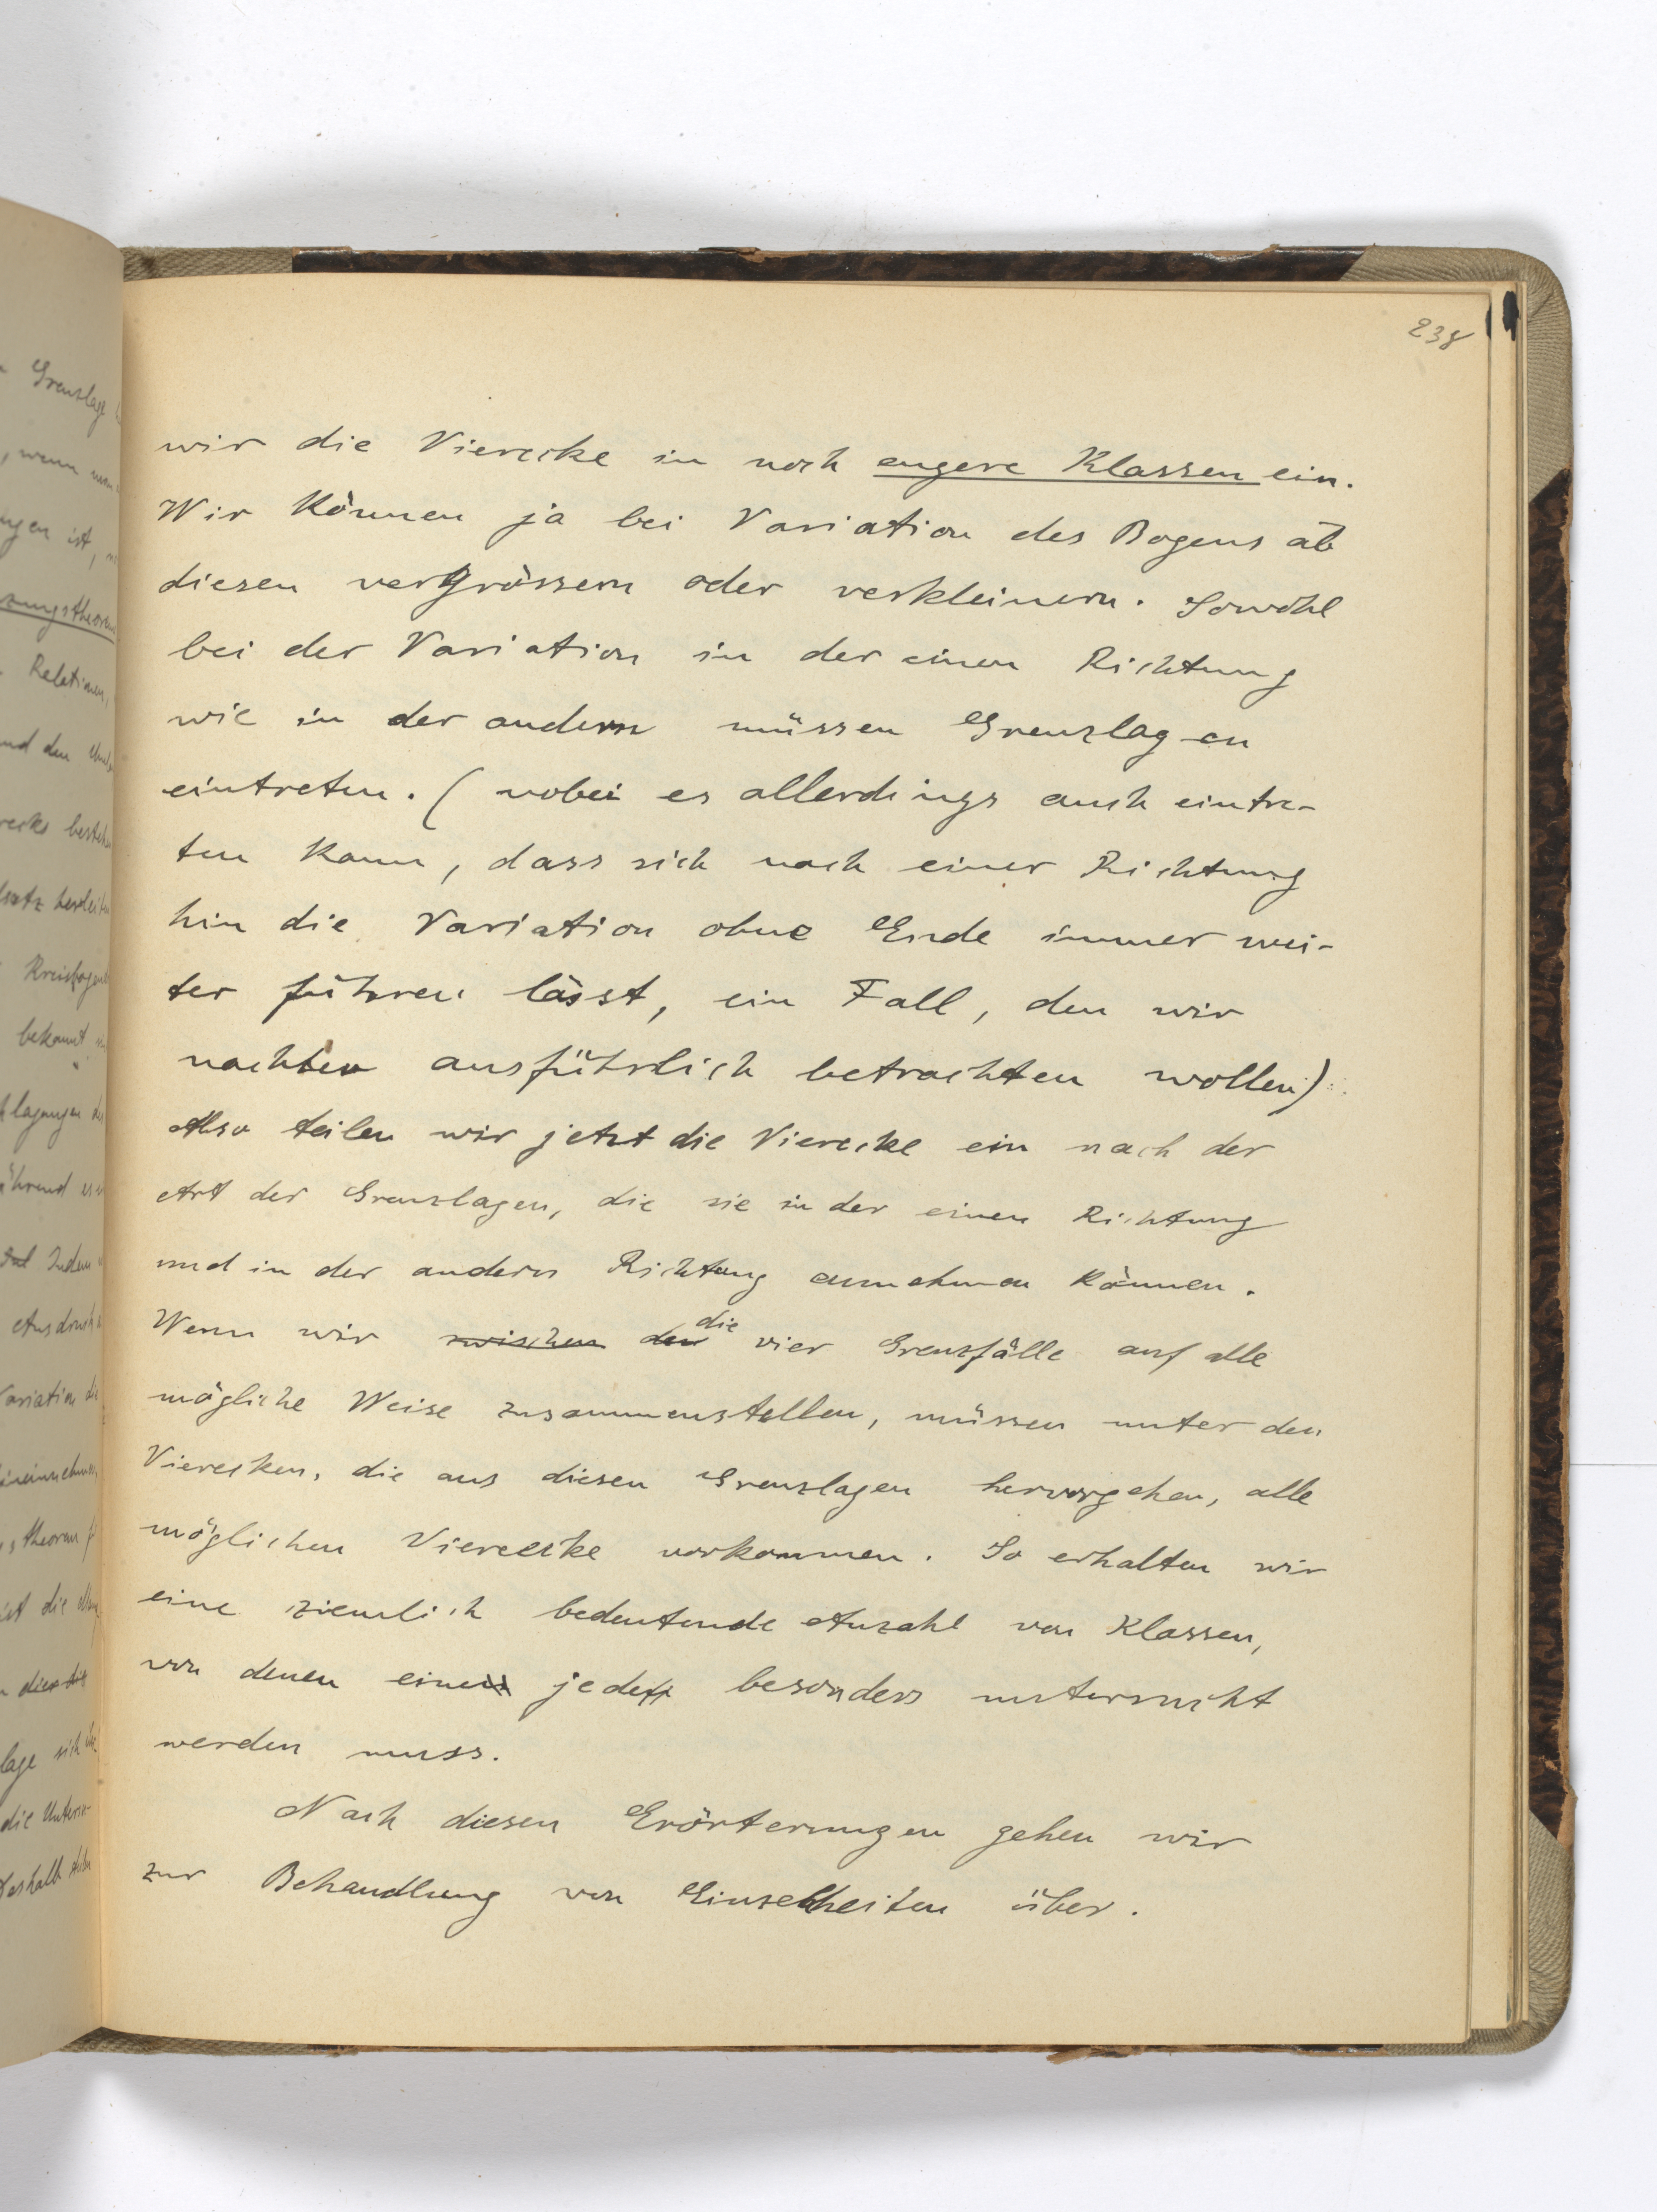 238
wir die Vierecke in noch engere Klassen ein.
Wir können ja bei Variation des Bogens ab
diesen vergrössern oder verkleinern. Sowohl
bei der Variation in der einen Richtung
wie in der andern müssen Grenzlagen
eintreten. (wobei es allerdings auch eintre-
ten kann, dass sich nach einer Richtung
hin die Variation ohne Ende immer wei-
ter führen lässt, ein Fall, den wir
nachher ausführlich betrachten wollen)
Also teilen wir jetzt die Vierecke ein nach der
Art der Grenzlagen, die sie in der einen Richtung
und in der andern Richtung annehmen können.
Wenn wir zwischen den die vier Grenzfälle auf alle
mögliche Weise zusammenstellen, müssen unter den
Vierecken, die aus diesen Grenzlagen hervorgehen, alle
möglichen Vierecke vorkommen. So erhalten wir
eine ziemlich bedeutende Anzahl von Klassen,
von denen eine jede besonders untersucht
werden muss.
Nach diesen Erörterungen gehen wir
zur Behandlung von Einzelheiten über.
Grenzlage
, wenn
ist,
Relationen,
und den
bekannt
Indem
Ausdruck
Variation die
theorem
ist die
lage sich
die Unters-
deshalb